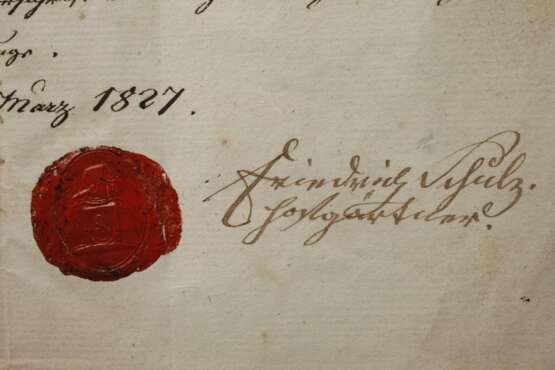 März 1827.
Friedrich Schulz.
Hofgärtner.